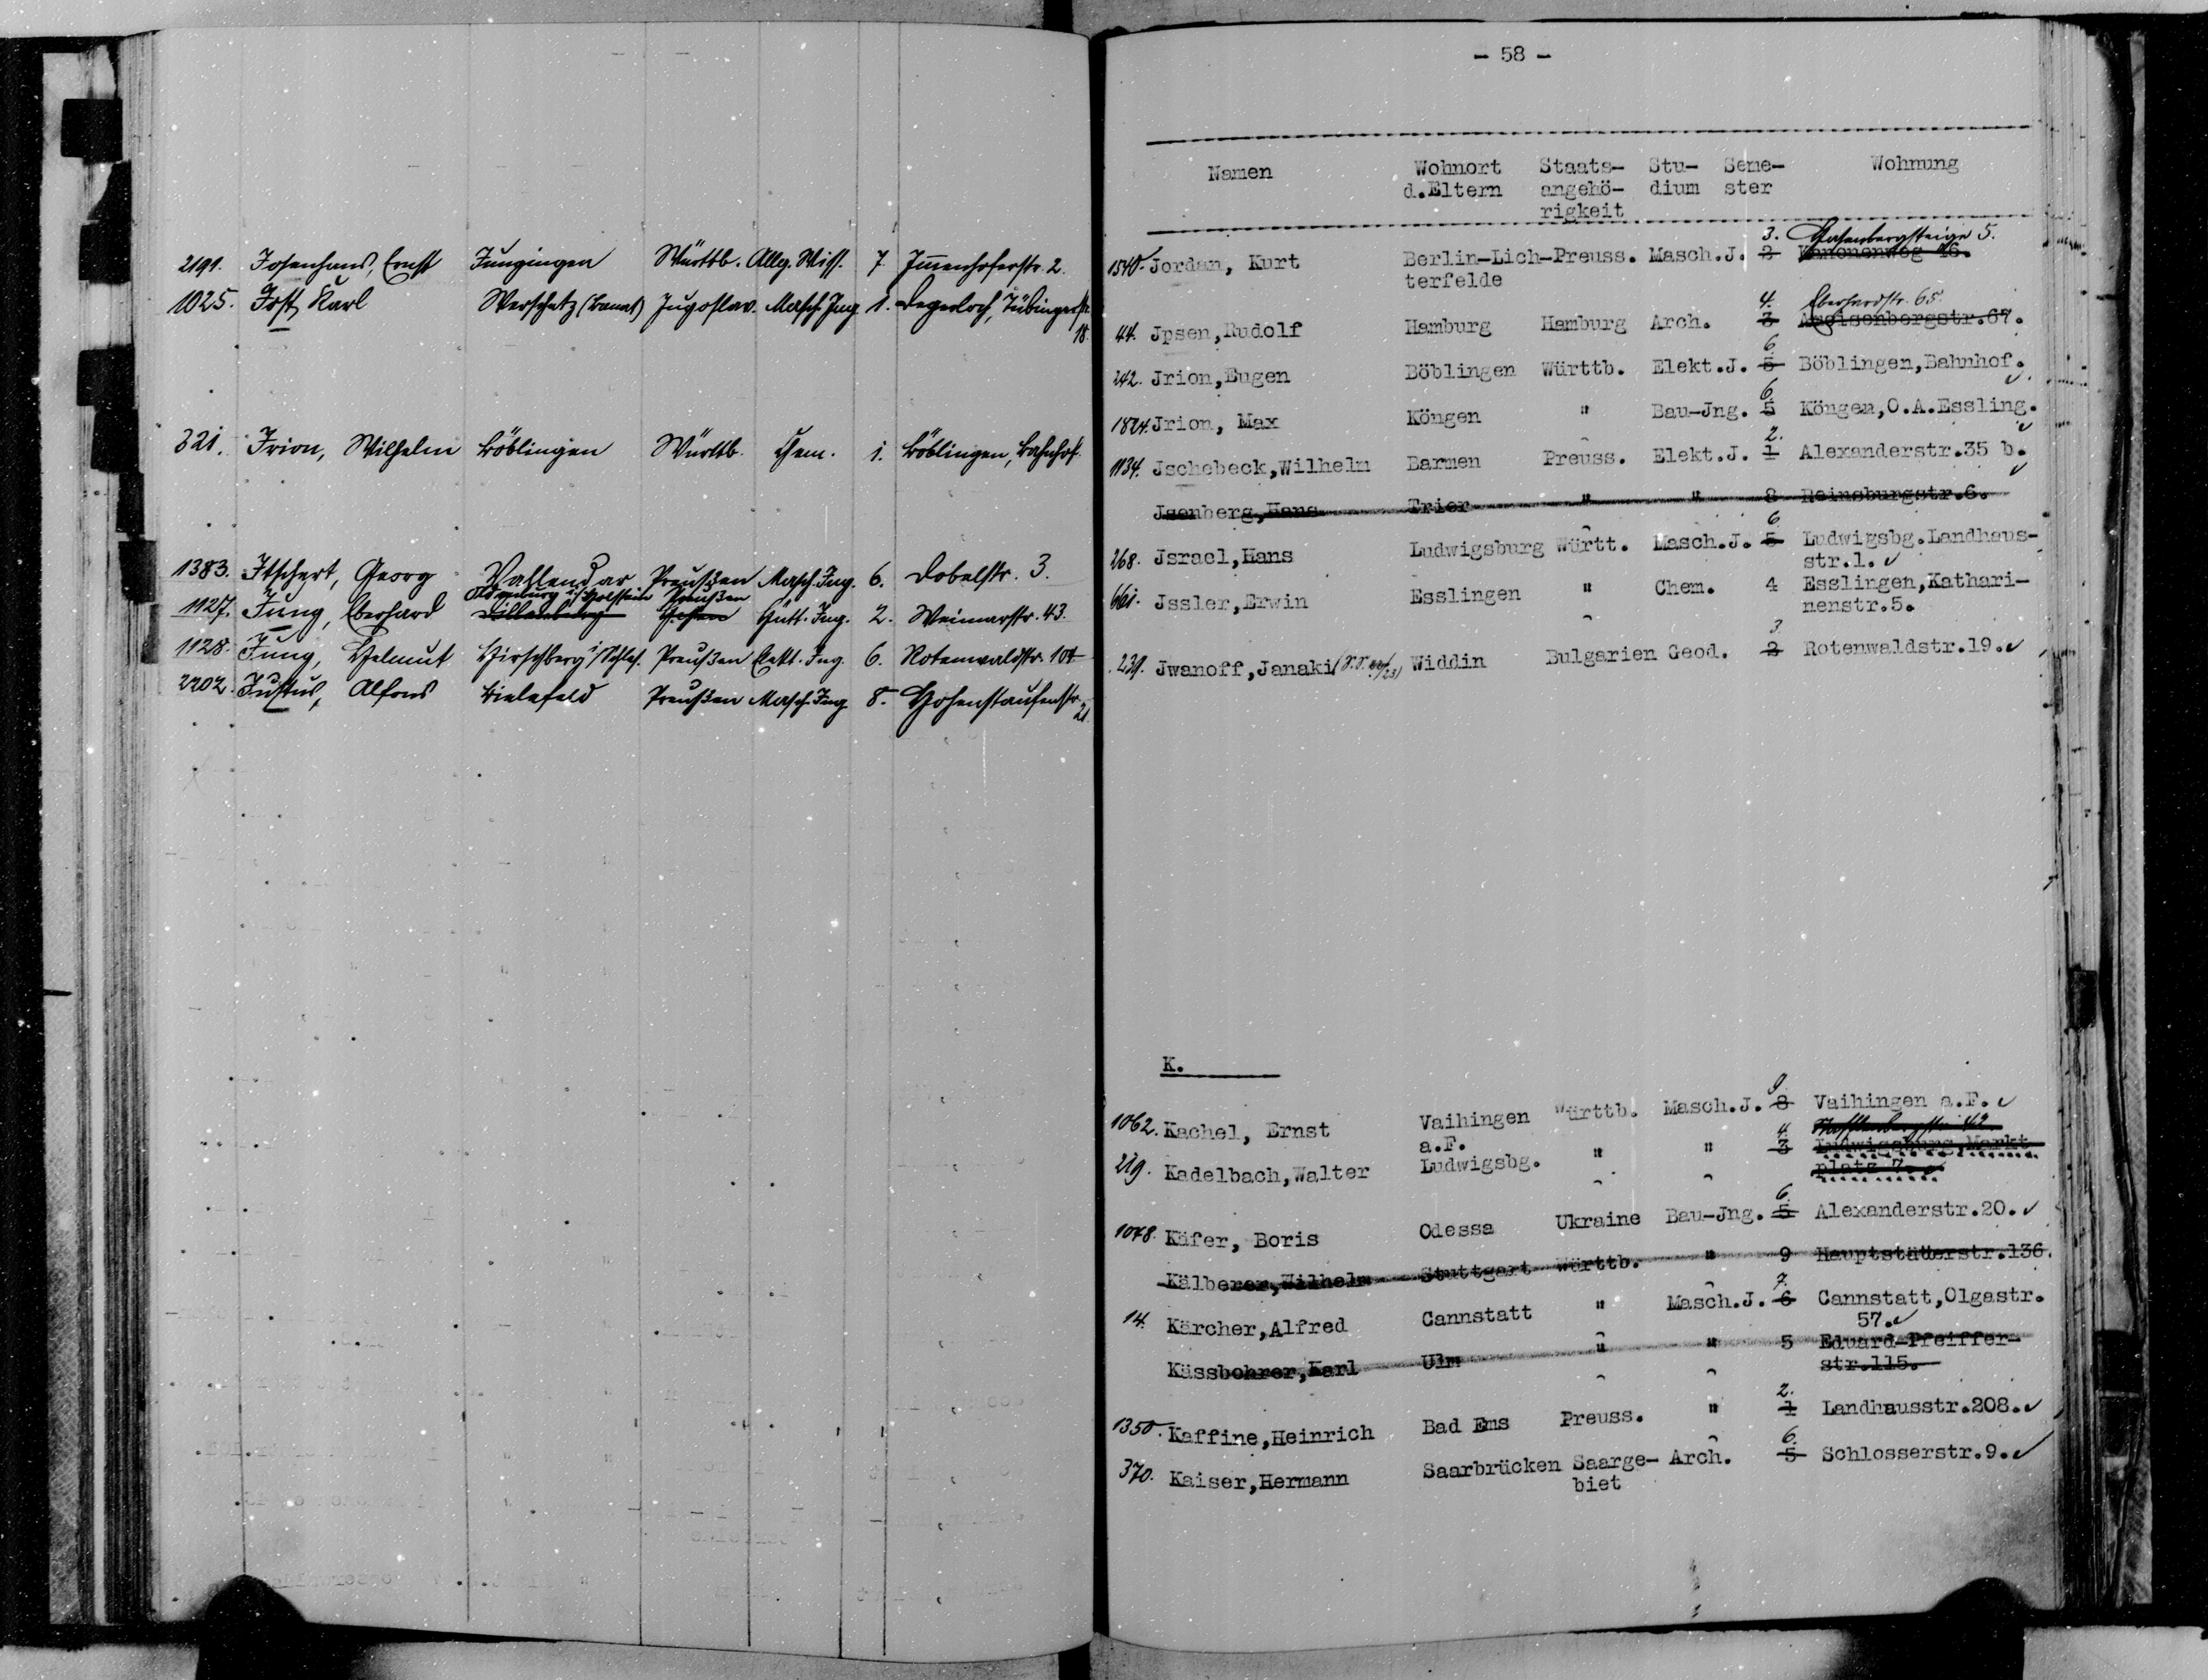 2191. Josenhans, Ernst Jungingen Württb. Allg. Wiss. 7 Immenhoferstr. 2.
1025. Jost, Karl Werschetz (Banat) Jugoslav. Masch. Ing. 1. Degerloch, Tübingerstr.
18.
321. Irion, Wilhelm Böblingen Württb. Chem. 1. Böblingen, Bahnhof.
1383. Itschert, Georg Vallendar Preußen Masch. Ing. 6. Dobelstr. 3.
Oldenburg i/Holstein Preußen
1127. Jung, Eberhard Hütt. Ing. 2. Weimarstr. 43.
1128. Jung, Helmut Hirschberg i/Schles. Preußen Elekt. Ing. 6. Rotenwaldstr. 104
2202. Justus, Alfons Bielefeld Preußen Masch. Ing. 8. Hohenstaufenstr.
21.
- 58 -
Namen Wohnort Staats- Stu- Seme- Wohnung
d.Eltern angehö- dium ster
rigkeit
3. Hasenbergsteige 5.
1540. Jordan, Kurt Berlin-Lich- Preuss. Masch.J. 2 46.
terfelde
4. Eberhardstr. 65.
44. Jpsen,Rudolf Hamburg Hamburg Arch. 3 Ameisenbergstr.67.
6.
242. Jrion,Eugen Böblingen Württb. Elekt.J. 5 Böblingen,Bahnhof.
6.
1824. Jrion, Max Köngen " Bau-Jng. 5 Köngen,O.A.Essling.
2.
1134. Jschebeck,Wilhelm Barmen Preuss. Elekt.J. 1 Alexanderstr.35 b.
Jsenberg,Hans Trier " " 8 Reinsburgstr.6.
6.
268. Jsrael,Hans Ludwigsburg Württ. Masch.J. 5 Ludwigsbg.Landhaus-
str.1.
661. Jssler,Erwin Esslingen " Chem. 4 Esslingen,Kathari-
nenstr.5.
3.
231. Jwanoff,Janaki Widdin Bulgarien Geod. 2 Rotenwaldstr.19.
K.
9
1062. Kachel, Ernst Vaihingen Württb. Masch.J. 8 Vaihingen a.F.
a.F.
4.
219. Kadelbach,Walter Ludwigsbg. " " 3 Ludwigsburg,Markt
platz 7.
6.
1048. Käfer, Boris Odessa Ukraine Bau-Jng. 5 Alexanderstr.20.
Kälberer,Wilhelm Stuttgart Württb. " 9 Hauptstätterstr.136.
7.
14. Kärcher,Alfred Cannstatt " Masch.J. 6 Cannstatt,Olgastr.
57.
Kässbohrer,Karl Ulm " " 5 Eduard-Pfeiffer-
str.115.
2.
1350. Kaffine,Heinrich Bad Ems Preuss. " 1 Landhausstr.208.
6.
370. Kaiser,Hermann Saarbrücken Saarge- Arch. 5 Schlosserstr.9.
biet